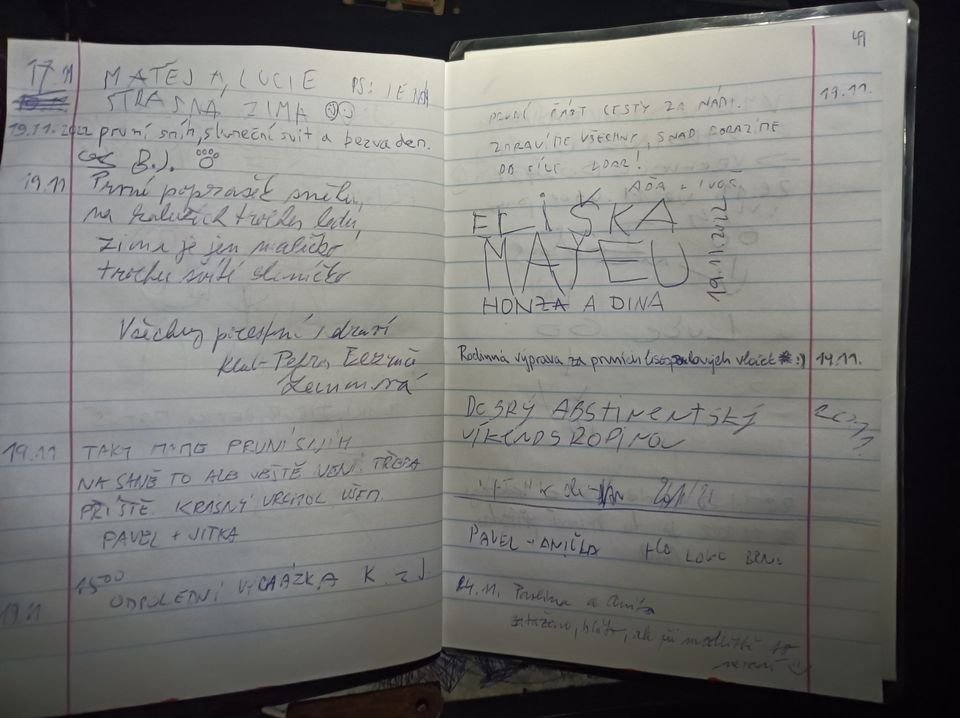 17.11
MATĚJ A, LUCIE PS: JE
STRAŠNÁ ZIMA
19.11.2022 první sníh, sluneční svit a bezva den.
B.J.
19.11 První poprašek sněhu,
na kalužích trochu ledu,
zima je jen maličko
trochu svítí sluníčko
Všechny přespní zdraví
klub Petra Bezruče
19.11 TAKY MÁME PRVNÍ SNÍH
NA SÁNĚ TO ALE JEŠTĚ NENÍ. TŘEBA
PŘÍŠTĚ KRÁSNÝ VRCHOL VŠEM.
PAVEL + JITKA
15:00
19.11 ODPOLEDNÍ VYCHÁZKA K. z J
49
PRVNÍ ČÁST CESTY ZA NÁMI. 19.11.
ZDRAVÍME VŠECHNY, SNAD DORAZÍME
DO CÍLE ZDAR!
AĎA + IVOŠ
ELIŠKA
MATEU
HONZA A DINA
19.11.2022
Rodinná výprava za prvních listopadových vloček :) 19.11.
DOBRÝ ABSTINENTSKÝ
VÍKEND
PAVEL + ANIČKA
24.11. Pavlína a
zataženo, bláto, ale při modlitbě to
nevadí